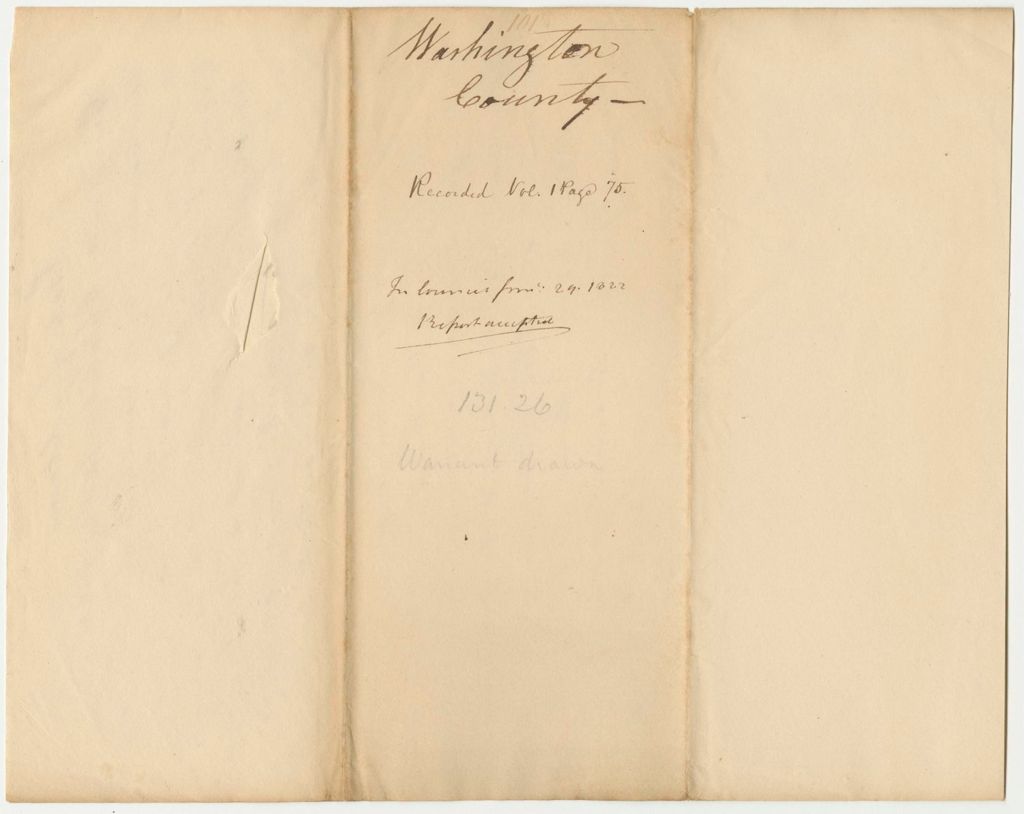 Washington
County—
Recorded Vol. 1 Page 75.
In Council 29. 1822
Report accepted
131.26
Warrant drawn